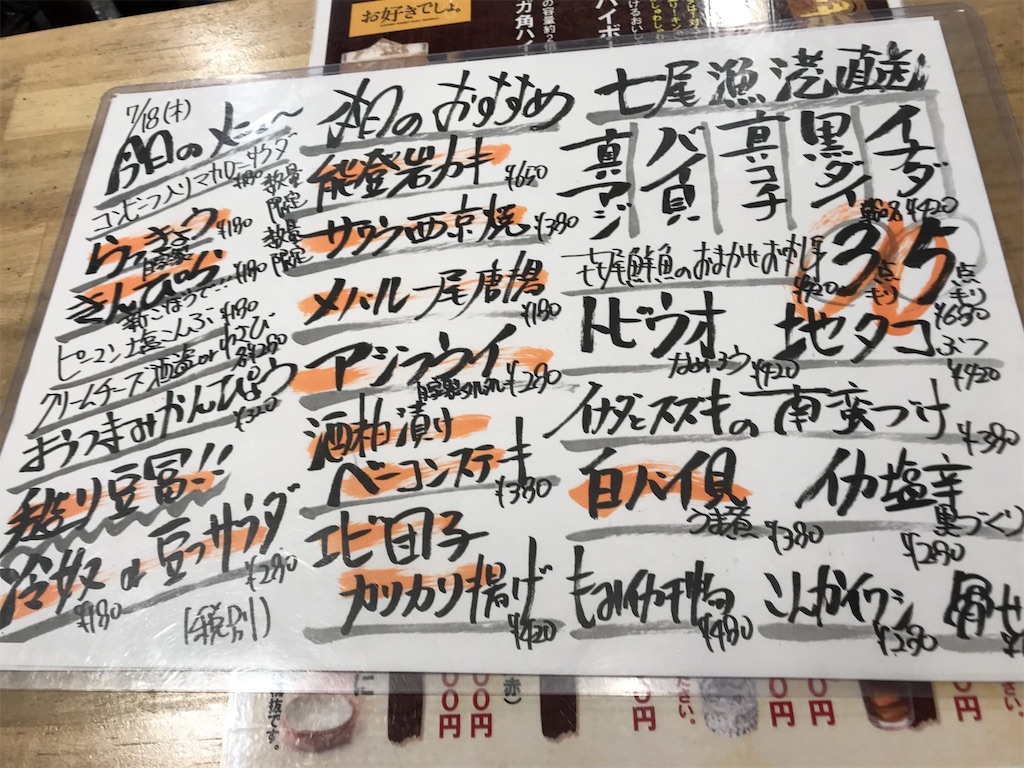 お好きでしょ。
7/18(木)
今日の
コンビーフ入りマカロニサラダ
¥180
数量限定
らっきょう
自家製
¥180
数量限定
きんぴら
新ごぼうで…
¥180
ピーマン塩こんぶ
¥180
クリームチーズ酒盗orわさび
各¥280
おつまみかんぴょう
¥320
手造り豆冨!!
冷奴
¥180
or
豆冨サラダ
¥280
(税別)
本日のおすすめ
能登岩カキ
¥650
サワラ西京焼
¥380
メバル一尾唐揚
¥180
アジフライ
自家製タルタル
¥280
酒粕漬け
ベーコンステーキ
¥380
エビ団子
カリカリ揚げ
¥420
七尾漁港直送
真アジ
バイ貝
真コチ
黒ダイ
イナダ
¥420
七尾鮮魚のおまかせお刺身
3点キリ
5点キリ
¥650
トビウオ
なめろう
¥420
地タコ
ぶつ
¥420
イナダとスズキの南蛮づけ
¥380
白バイ貝
うま煮
¥380
イカ塩辛
黒づくり
¥280
もみイカ干物
¥480
こんかイワシ
¥280
骨せ
00円
00円
(赤)
00円
00円
00円
ださい。
抜です。